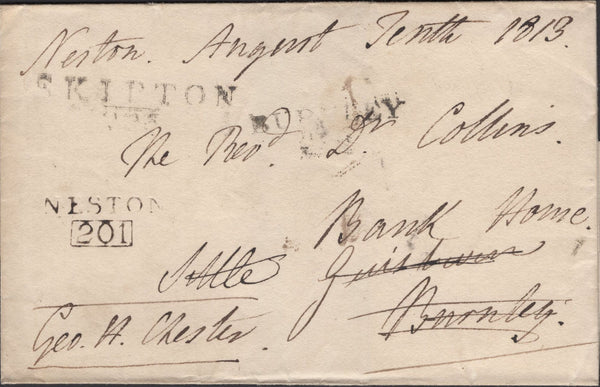 Neston. August Tenth 1813.
SKIPTON
BURNLEY
The Revd. Dr. Collins.
NESTON
201
Bank Home.
Settle
Burnley.
Geo. H. Chester.